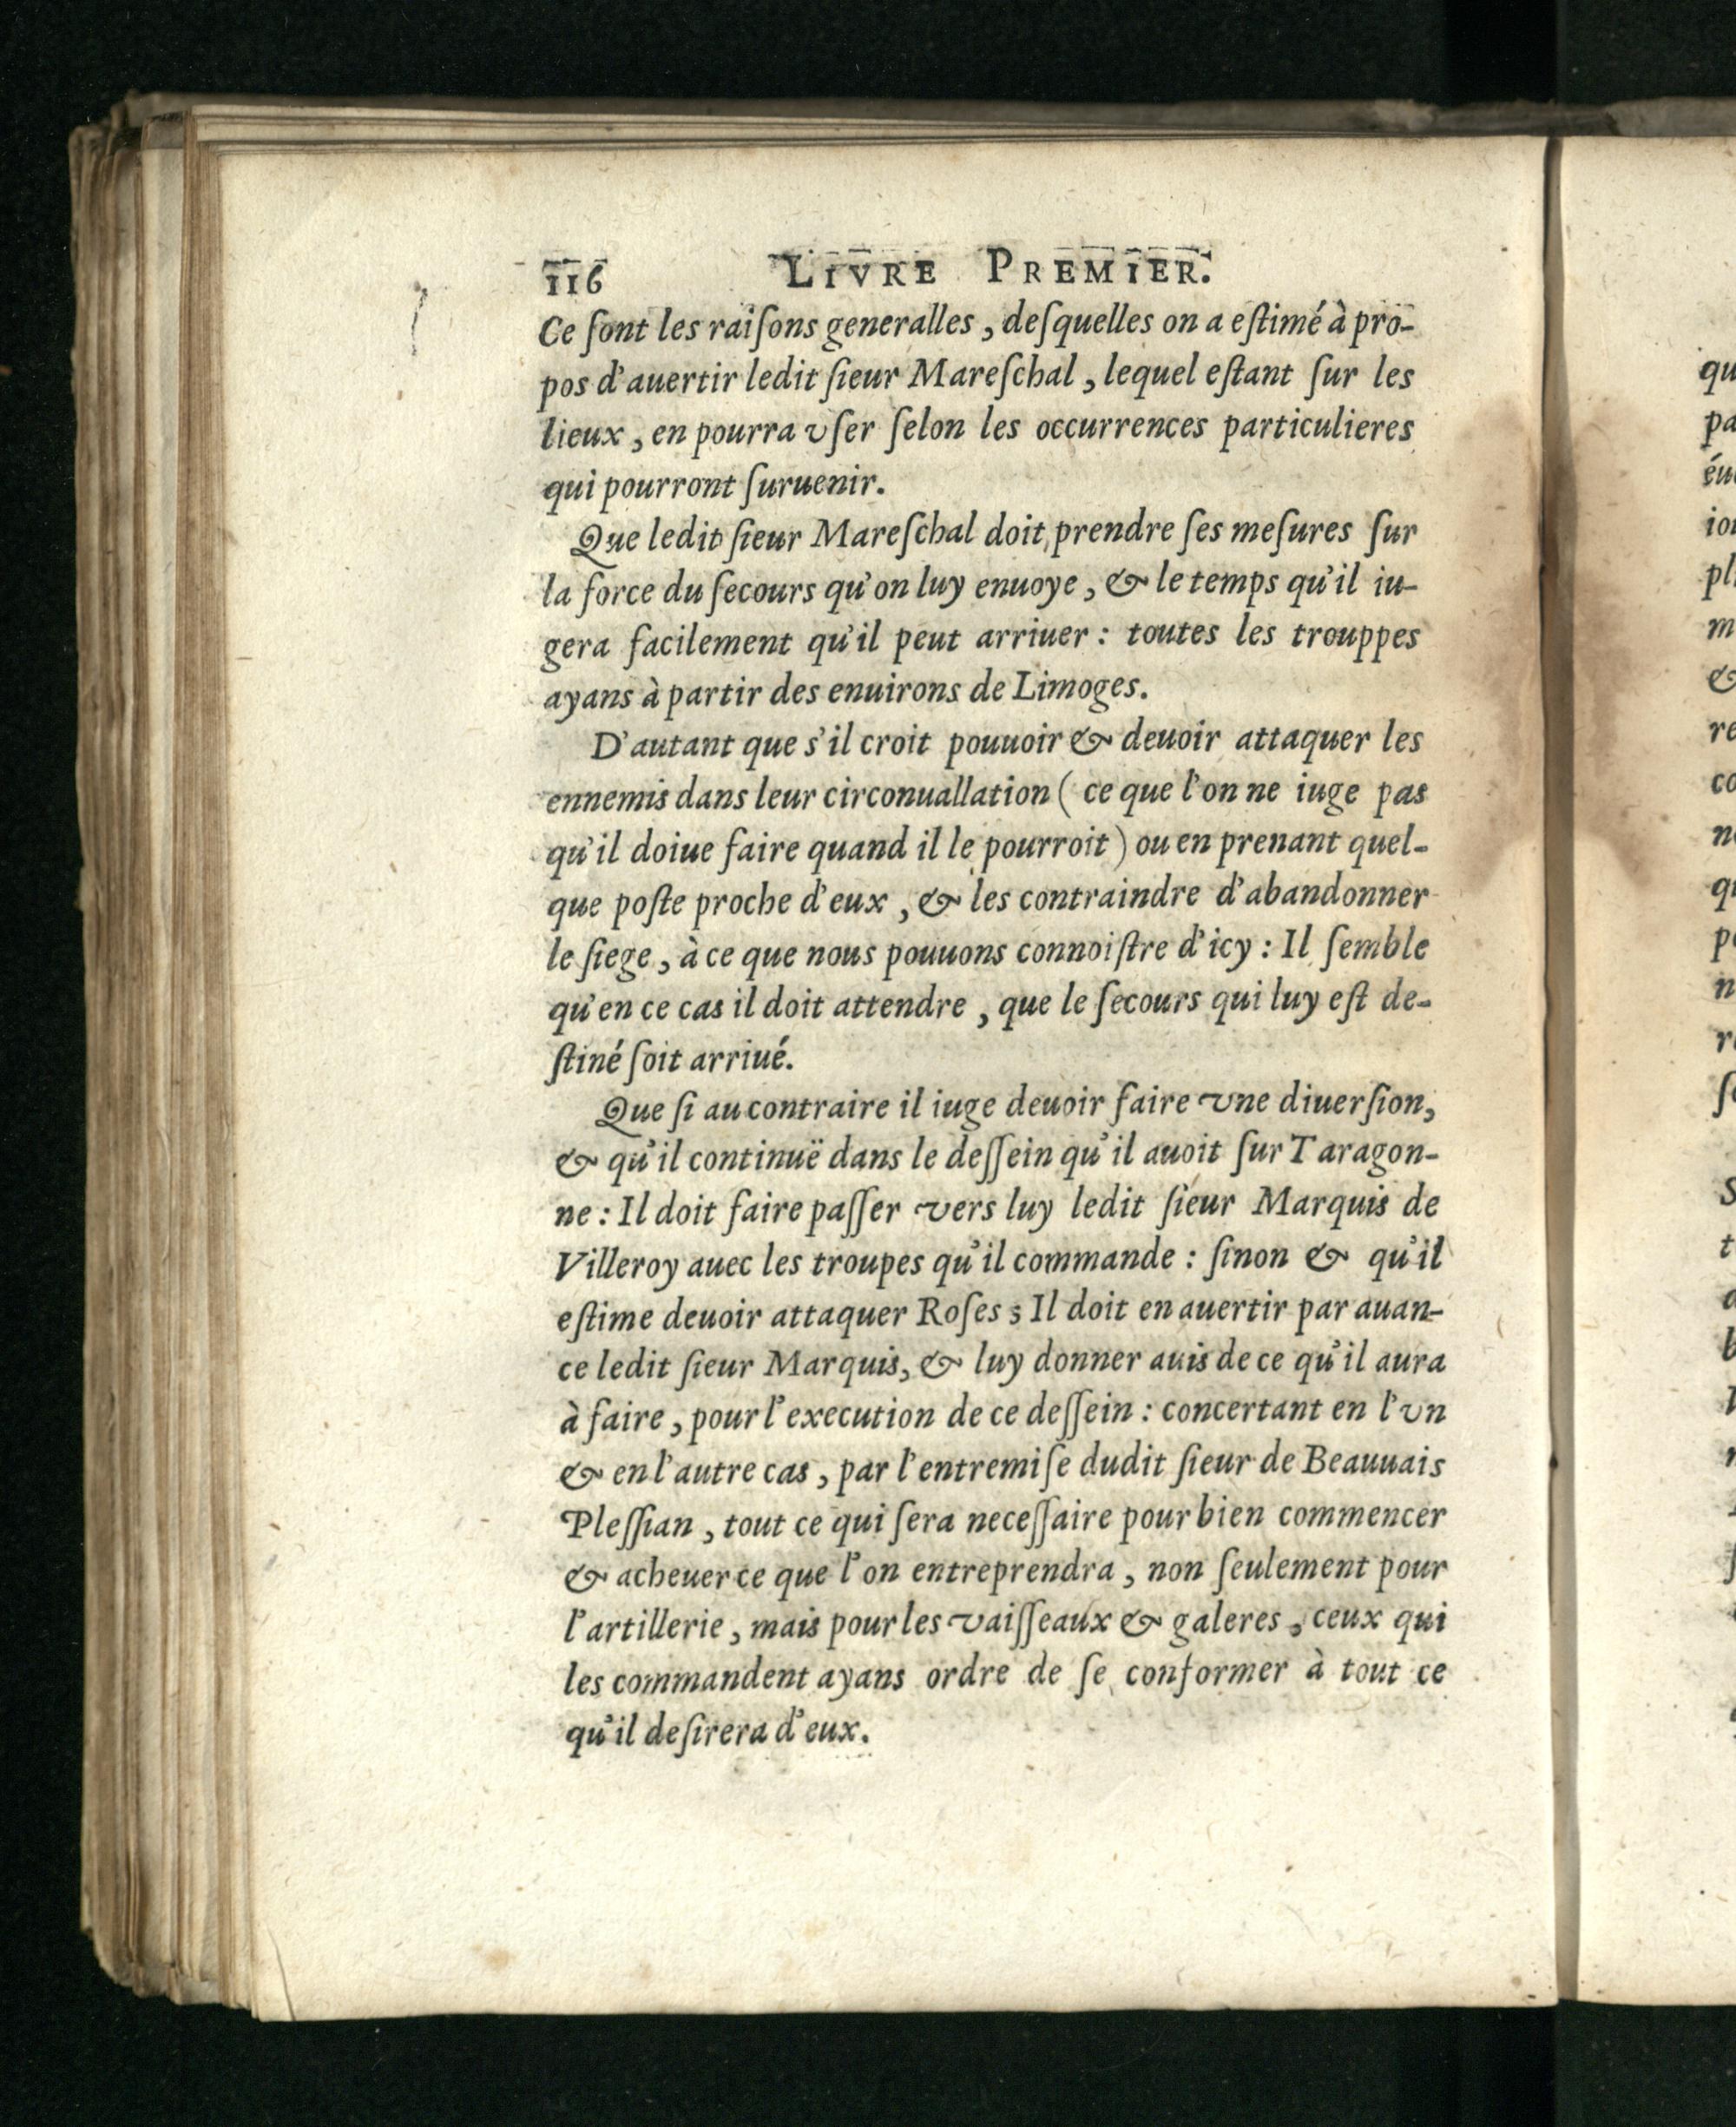 116 LIVRE PREMIER.
Ce ſont les raiſons generalles, deſquelles on a eſtimé à pro-
pos d'auertir ledit ſieur Mareſchal, lequel eſtant ſur les
lieux, en pourra vſer ſelon les occurrences particulieres
qui pourront ſuruenir.
Que ledit ſieur Mareſchal doit prendre ſes meſures ſur
la force du ſecours qu'on luy enuoye, & le temps qu'il iu-
gera facilement qu'il peut arriuer : toutes les trouppes
ayans à partir des enuirons de Limoges.
D'autant que s'il croit pouuoir & deuoir attaquer les
ennemis dans leur circonuallation ( ce que l'on ne iuge pas
qu'il doiue faire quand il le pourroit ) ou en prenant quel-
que poſte proche d'eux, & les contraindre d'abandonner
le ſiege, à ce que nous pouuons connoiſtre d'icy : Il ſemble
qu'en ce cas il doit attendre, que le ſecours qui luy eſt de-
ſtiné ſoit arriué.
Que ſi au contraire il iuge deuoir faire vne diuerſion,
& qu'il continuë dans le deſſein qu'il auoit ſur Taragon-
ne : Il doit faire paſſer vers luy ledit ſieur Marquis de
Villeroy auec les troupes qu'il commande : ſinon & qu'il
eſtime deuoir attaquer Roſes ; Il doit en auertir par auan-
ce ledit ſieur Marquis, & luy donner auis de ce qu'il aura
à faire, pour l'execution de ce deſſein : concertant en l'vn
& en l'autre cas, par l'entremiſe dudit ſieur de Beauuais
Pleſſian, tout ce qui ſera neceſſaire pour bien commencer
& acheuer ce que l'on entreprendra, non ſeulement pour
l'artillerie, mais pour les vaiſſeaux & galeres, ceux qui
les commandent ayans ordre de ſe conformer à tout ce
qu'il deſirera d'eux.